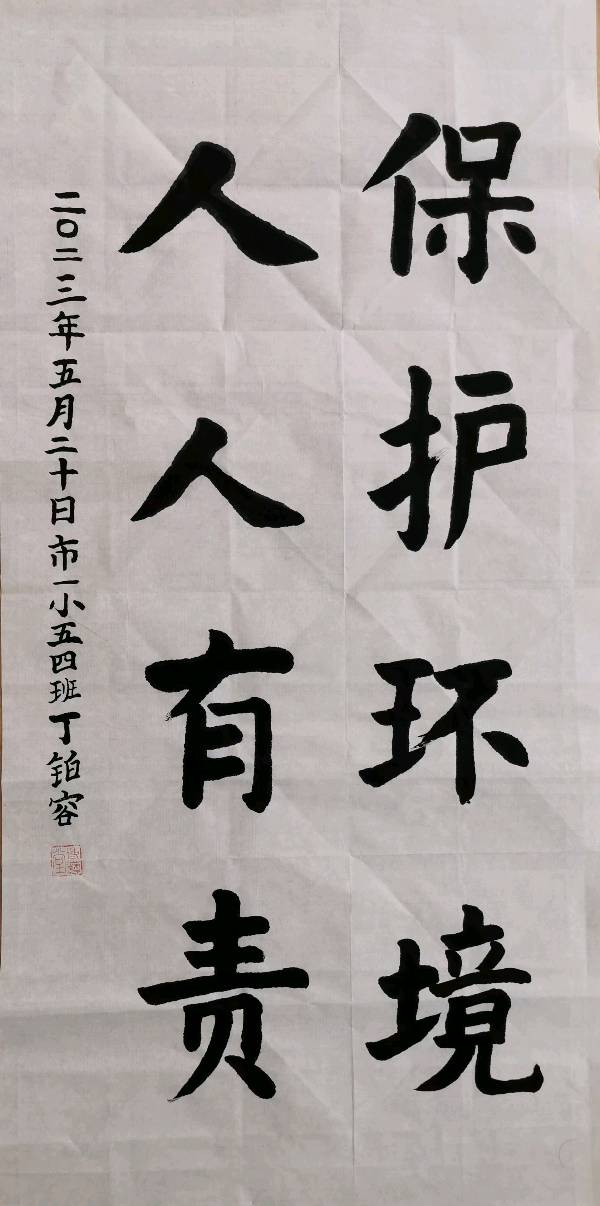 保护环境
人人有责
二〇二三年五月二十日市一小五四班丁铂容